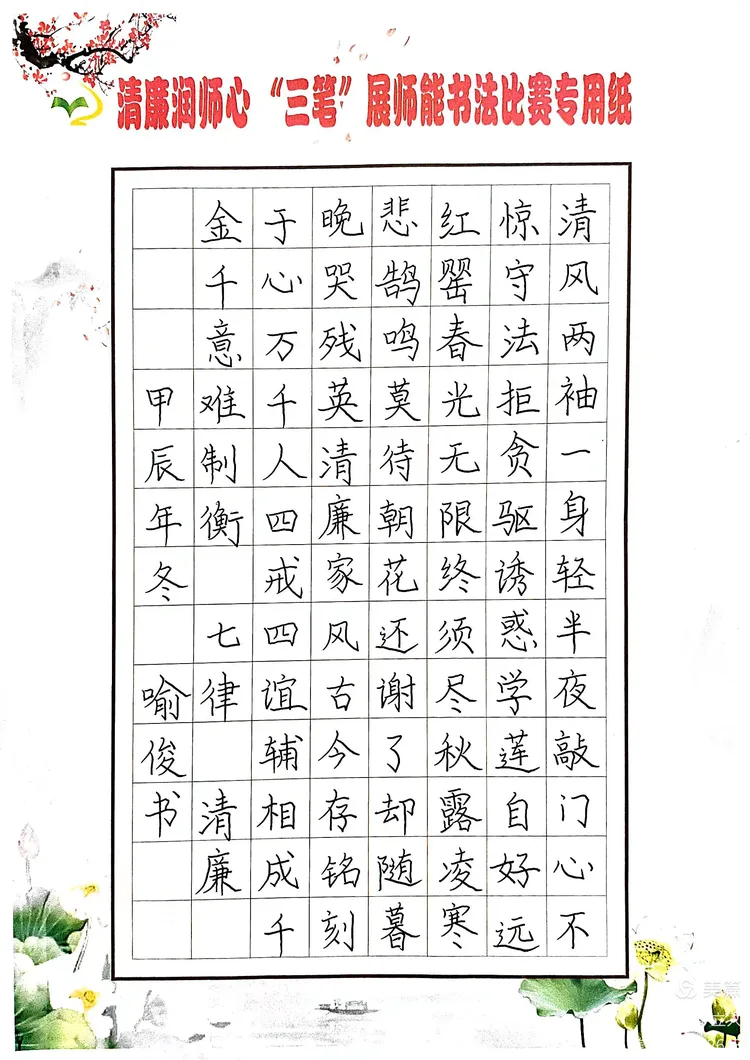 清廉润师心 “三笔”展师能书法比赛专用纸
清风两袖一身轻半夜敲门心不
惊守法拒贪驱诱惑学莲自好远
红罂春光无限终须尽秋露凌寒
悲鹄鸣莫待朝花还谢了却随暮
晚哭残英清廉家风古今存铭刻
于心万千人四戒四谊辅相成千
金千意难制衡 七律 清廉
甲辰年冬 喻俊书
美篇